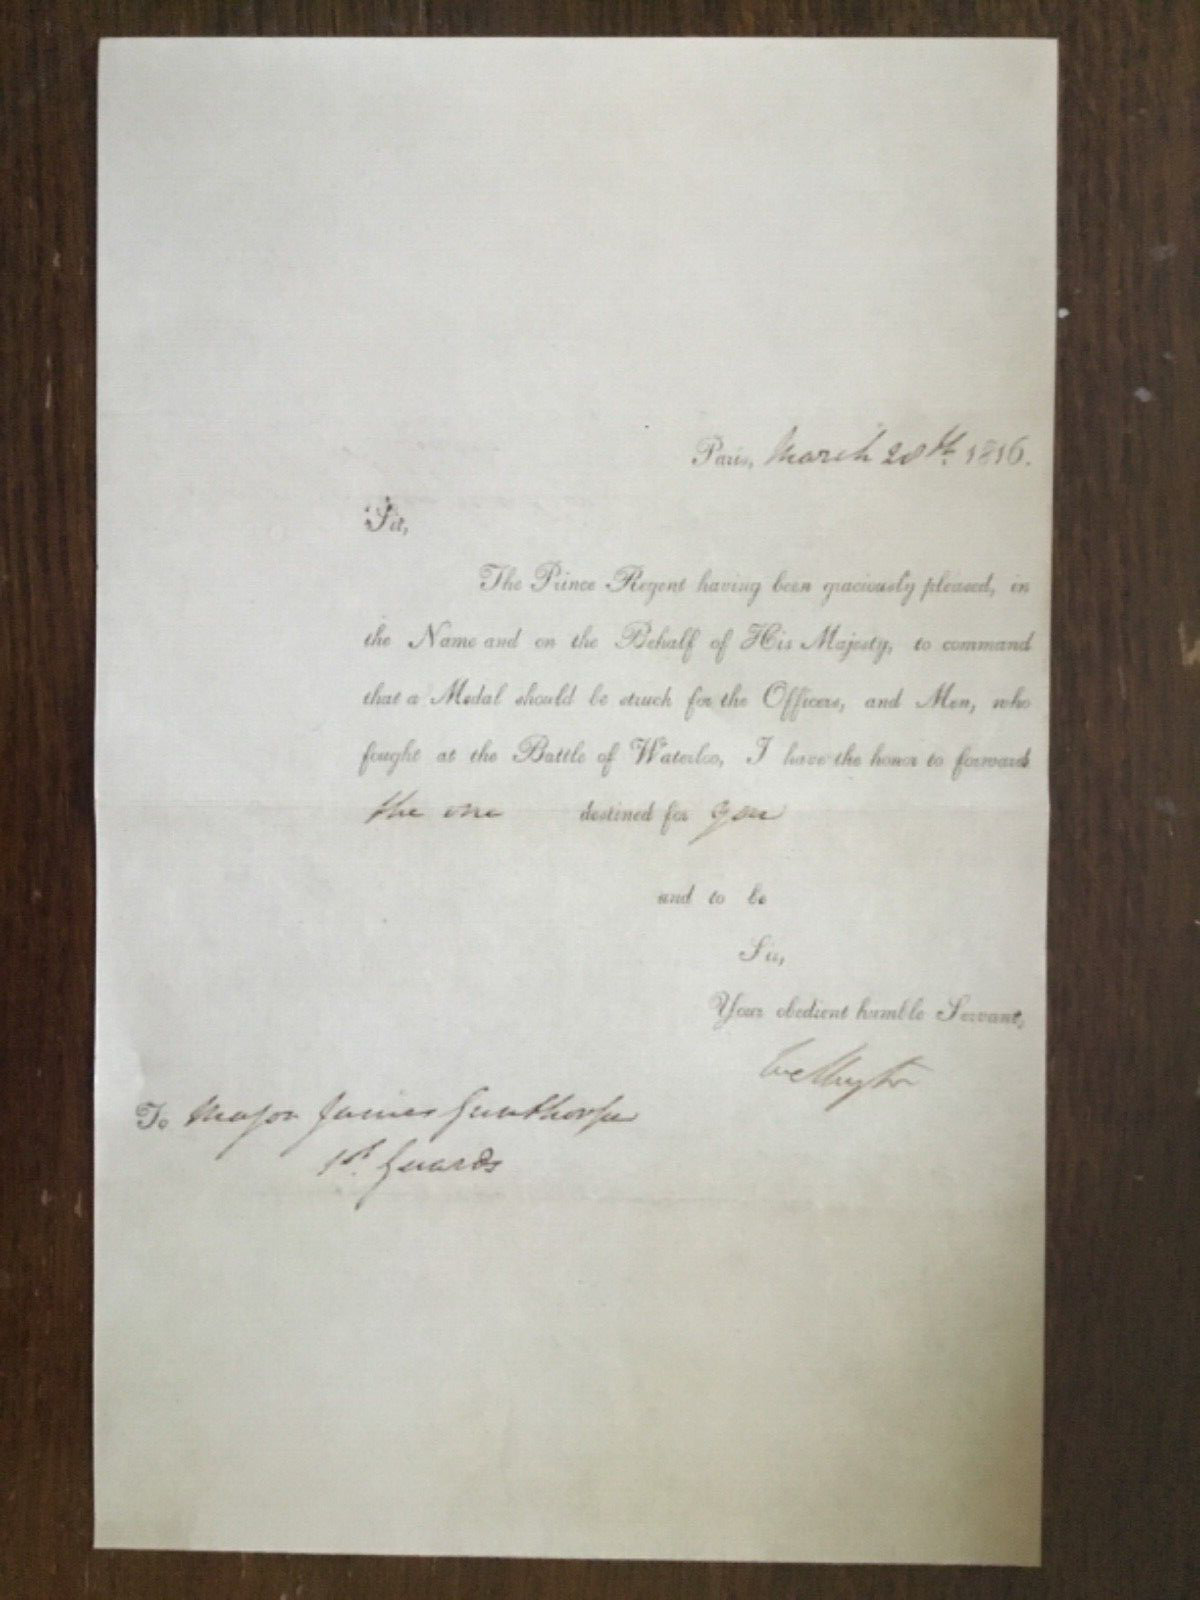 Paris, March 20th. 1816.
Sir,
The Prince Regent having been graciously pleased, in
the Name and on the Behalf of His Majesty, to command
that a Medal should be struck for the Officers, and Men, who
fought at the Battle of Waterloo, I have the honor to forward
the one destined for you
and to be
Sir,
Your obedient humble Servant,
Wellington
To Major James Gunthorpe
1st. Guards